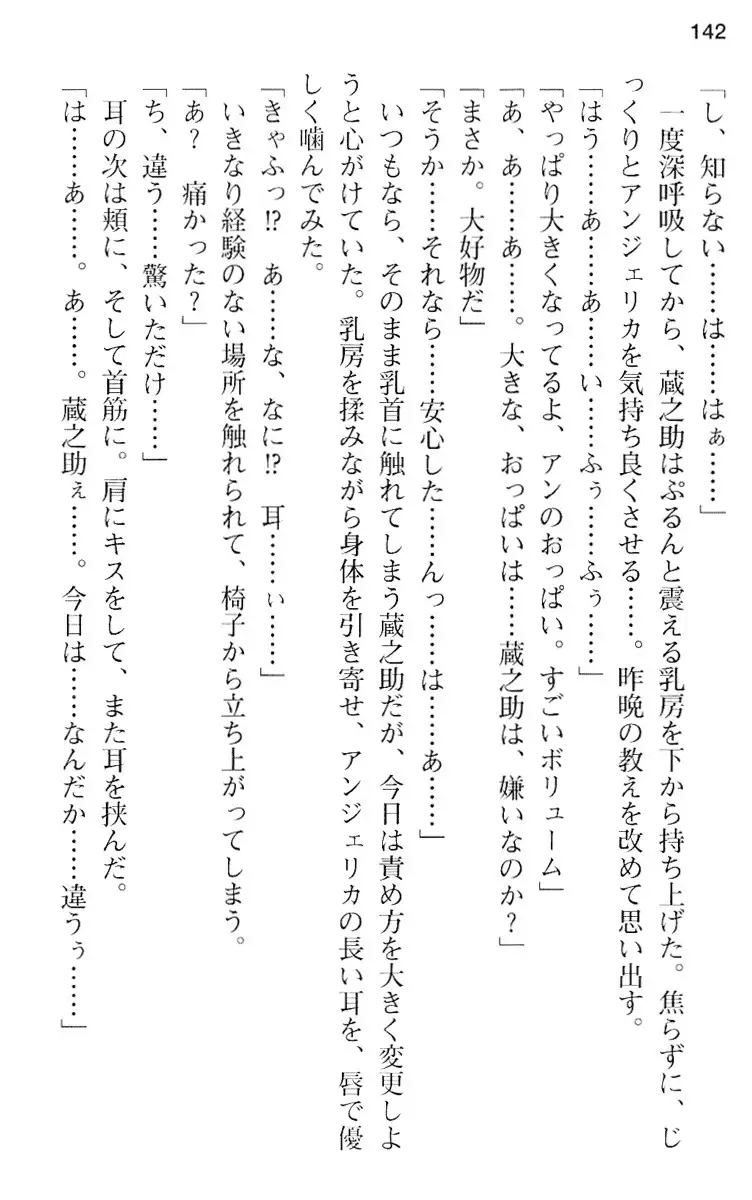 142
「し、知らない……は……はぁ……」
　一度深呼吸してから、蔵之助はぷるんと震える乳房を下から持ち上げた。焦らずに、じ
っくりとアンジェリカを気持ち良くさせる……。昨晩の教えを改めて思い出す。
「はう……あ……あ……い……ふぅ……ふぅ……」
「やっぱり大きくなってるよ、アンのおっぱい。すごいボリューム」
「あ、あ……あ……。大きな、おっぱいは……蔵之助は、嫌いなのか？」
「まさか。大好物だ」
「そうか……それなら……安心した……んっ……は……あ……」
　いつもなら、そのまま乳首に触れてしまう蔵之助だが、今日は責め方を大きく変更しよ
うと心がけていた。乳房を揉みながら身体を引き寄せ、アンジェリカの長い耳を、唇で優
しく噛んでみた。
「きゃふっ!?　あ……な、なに!?　耳……ぃ……」
　いきなり経験のない場所を触れられて、椅子から立ち上がってしまう。
「あ？　痛かった？」
「ち、違う……驚いただけ……」
　耳の次は頬に、そして首筋に。肩にキスをして、また耳を挟んだ。
「は……あ……。あ……。蔵之助ぇ……。今日は……なんだか……違うぅ……」